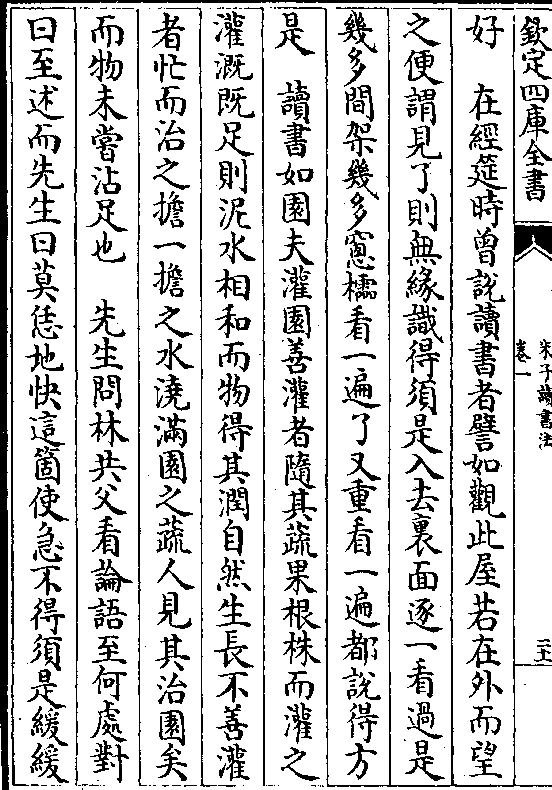 欽定四庫全書
朱子讀書法
卷一
三十
好　在經筵時曾說讀書者譬如觀此屋若在外而望
之便謂見了則無緣識得須是入去裏面逐一看過是
幾多間架幾多窻櫺看一遍了又重看一遍都說得方
是　讀書如園夫灌園善灌者隨其蔬果根株而灌之
灌溉既足則泥水相和而物得其潤自然生長不善灌
者忙而治之擔一擔之水澆滿園之蔬人見其治園矣
而物未嘗沾足也　先生問林共父看論語至何處對
曰至述而先生曰莫恁地快這箇使急不得須是緩緩